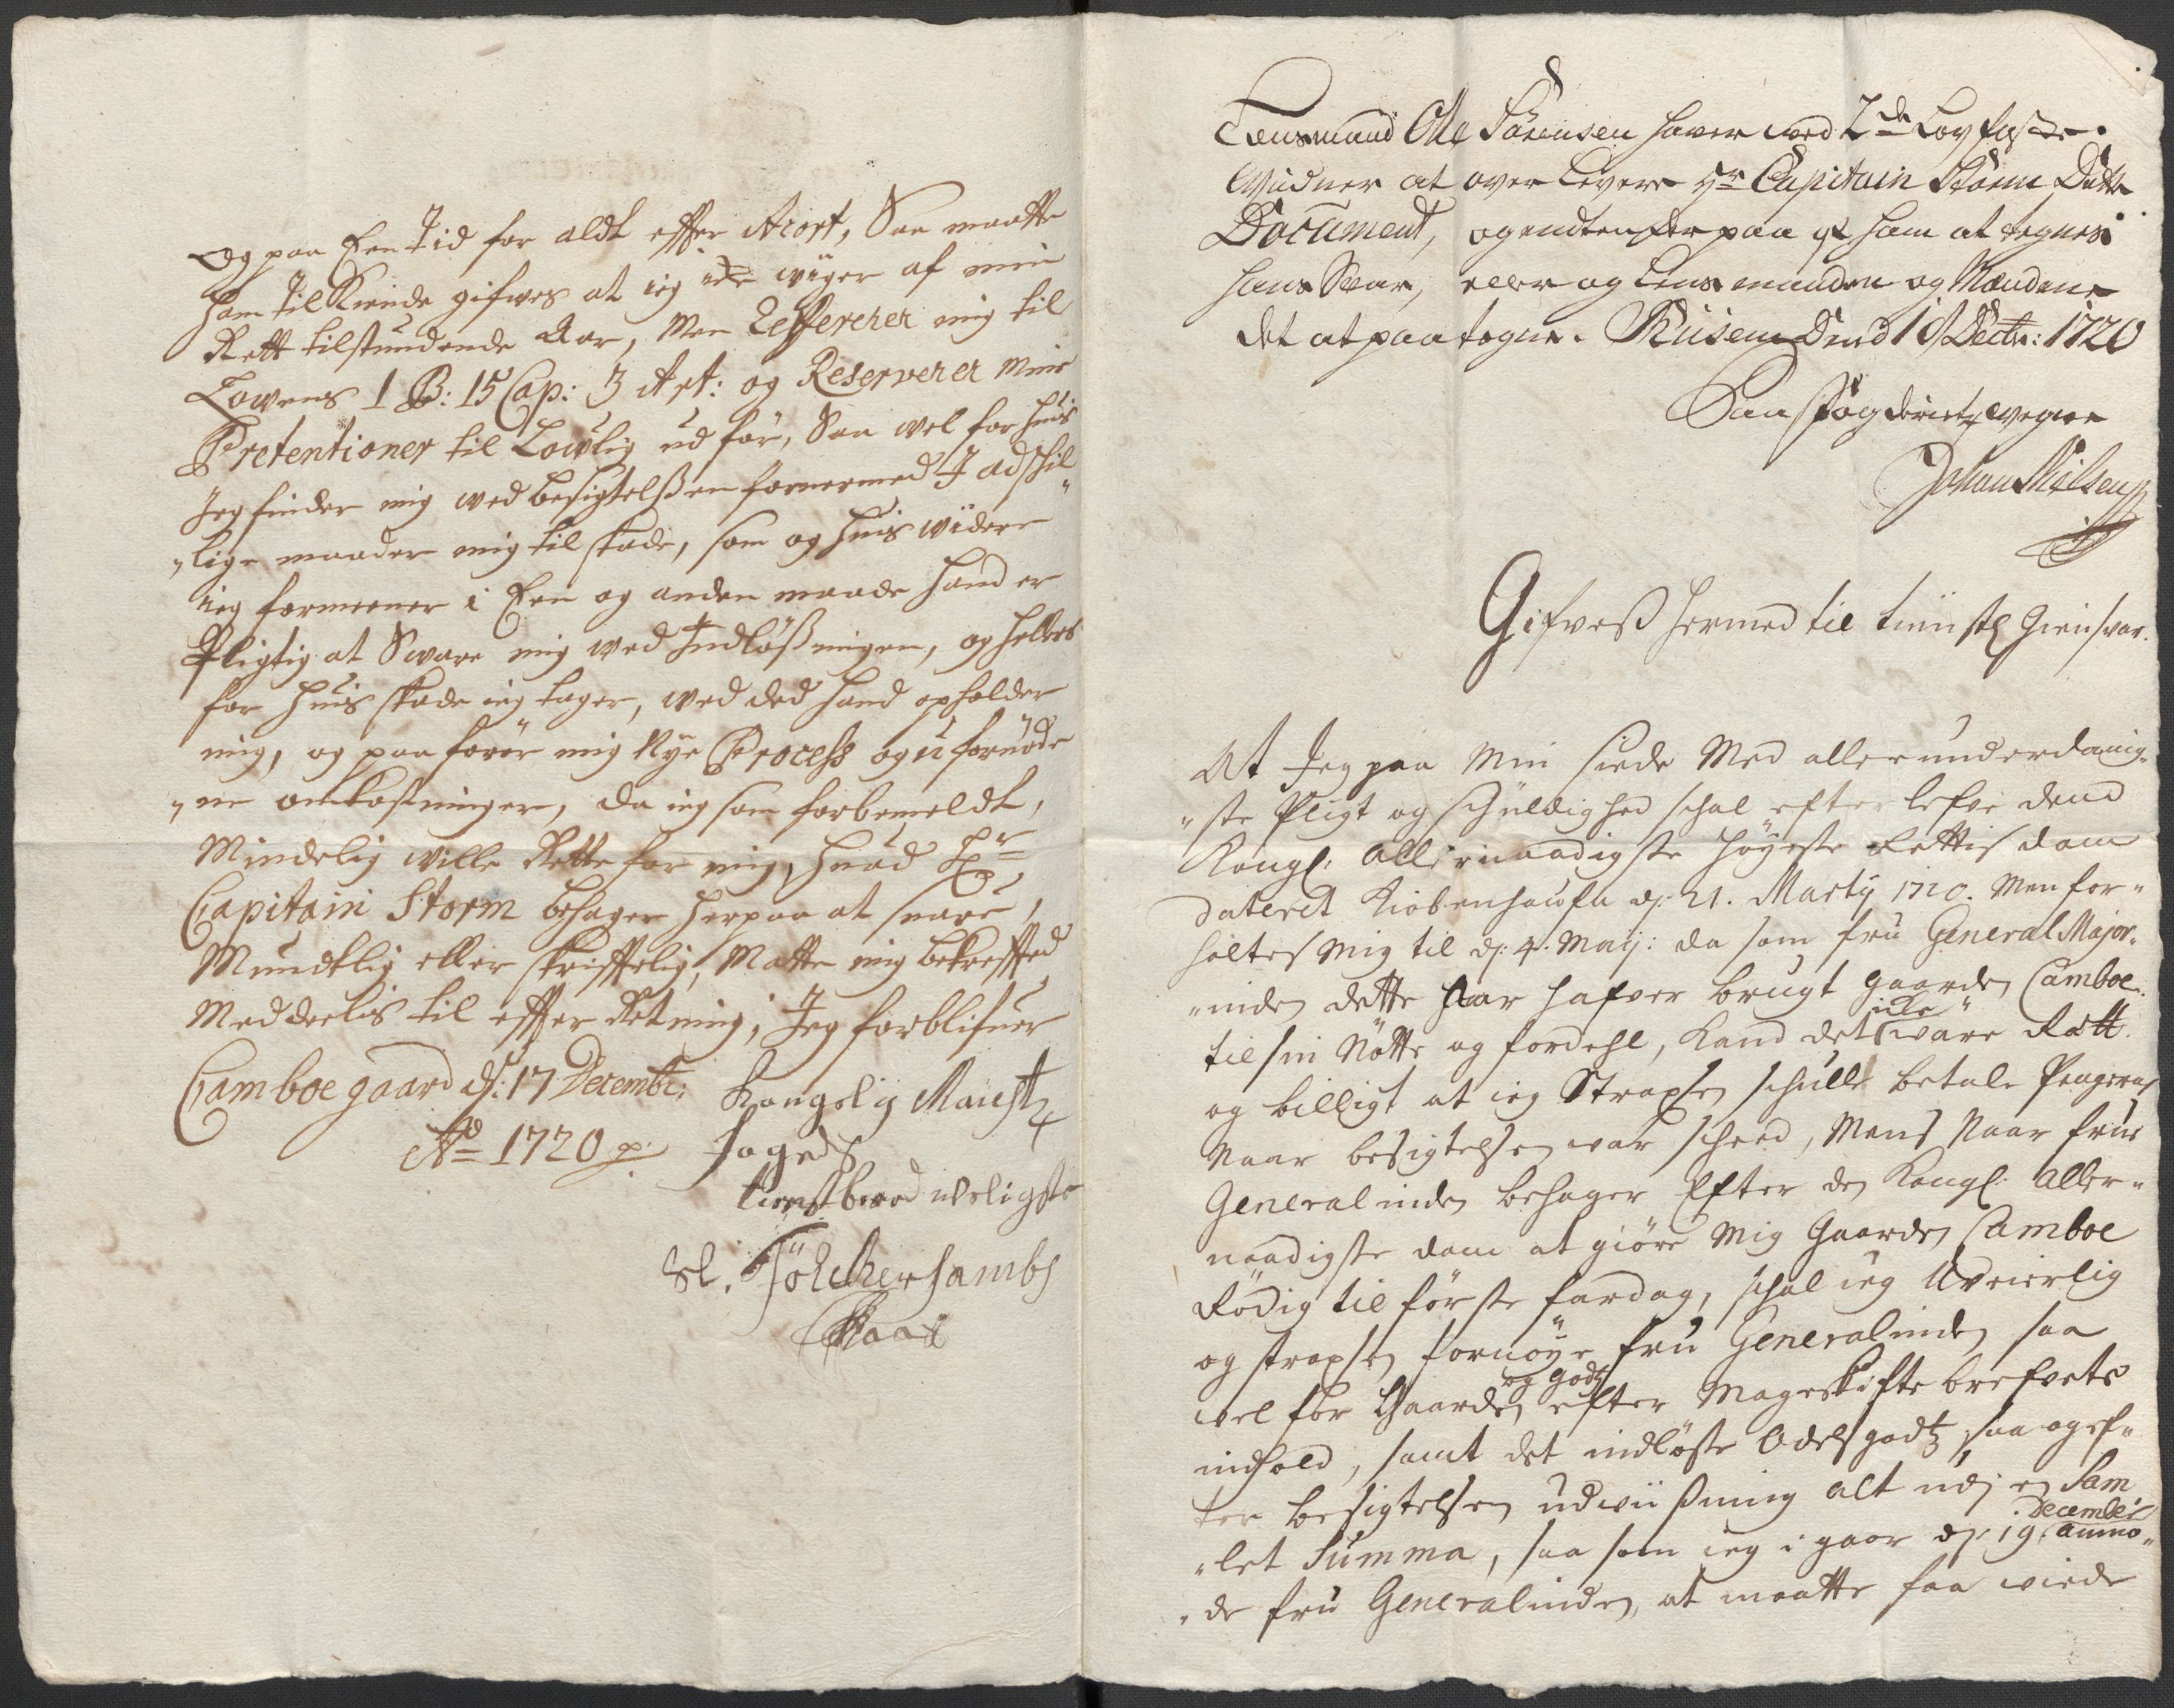 og paa Een Tid for aldt effter Acort, Saa maatte
ham tilKiende gifwes at ieg icke wiger af min
Rett tilstundende Aar, Men Refererer mig til
Lowens 1 B: 15 Cap: 3 Art: og Reserverer mine
Pretentioner til Lowlig ud för, Saa vel for huis
Jeg finder mig wed besigtelßen fornermed J adskil
„lige maader mig til skade, som og huis widere
ieg formeener i Een og anden maade hand er
Pligtig at Sware mig wed Indlößningen, og hellers
for huis skade ieg tager, wed ded hand opholder
mig, og paa förer mig Nye Process og ufornöde
„ne omkostninger, da ieg som forbemeldt,
Mindelig wille Rette for mig, huad Hr
Capitain Storm behager herpaa at suare,
Mundtlig eller skrifftelig, Matte mig bekreffted
Meddeelis til effterRetning, Jeg forblifuer
Camboe gaard d: 17 Decembr:
Ao 1720 p.
Kongelig Maiestz
foged
tienstberedweligste
Sl. Tölcker Hambs
Lensmand Olle Sörensen haver med 2de Lovfaste
Widner at overlevere Hr Capitain Storm Dette
Document, og endten her paa af ham at tegnes
hans Svar, eller og Lensmanden og Mændene
det at paategne. Rüisem Dend 18 Dectr: 1720
Paa fogderietz wegne
Johan Nilsen
Gifveß hermed til tienstl Giensvar.
At Jeg paa Min siede Med allerunderdanig„
„ste Pligt og schüldighed schal efterlefve dend
Kongl: allernaadigste höyeste Rettis dom
dateret Kiöbenhaufn d: 21. Marty 1720. Men for„
holtes Mig til d: 4. Maij: da som fru General Major„
„inden dette Aar hafver brugt gaarden Camboe
til sin Nötte og fordehl, kand det icke wære Rætt
og billigt at ieg Strapsen schulle betale Pengerne
Naar besigtelsen war scheed, Mens Naar frue
Generalinden behager Efter den Kongl: aller„
naadigste dom at giöre Mig Gaarden Camboe
Rödig til förste fardag, schal ieg Uveierlig
og strapsen fornöye fru Generalinden saa
vel for Gaarden og gods efter Mageskifte brefvets
indhold, samt det indlöste Odelsgodtz saa og ef„
ter besigtelsen udwiißning alt udj en Sam
„let Summa, saa som ieg i gaar d: 19 december anmo„
„de fru Generalinden, at maatte faa wiede